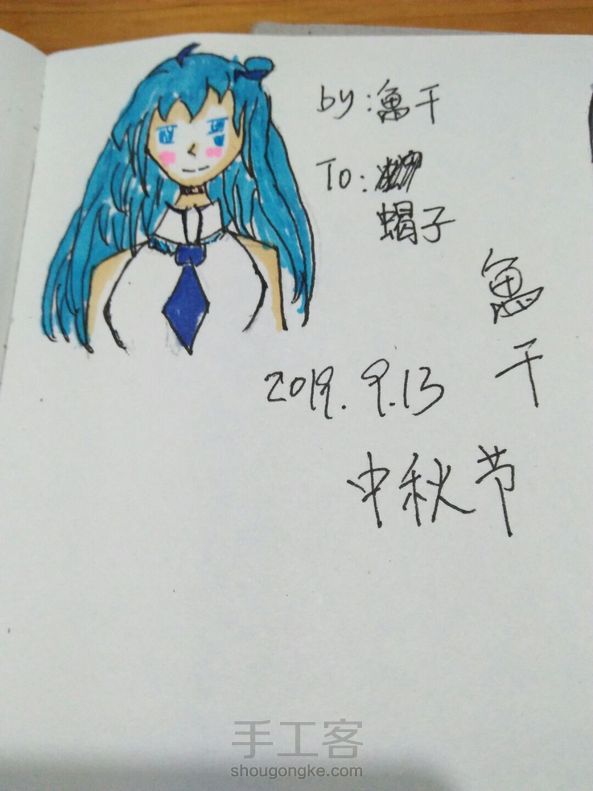 by:魚干
To:
蝎子
魚
干
2019.9.13
中秋节
手工客
shougongke.com